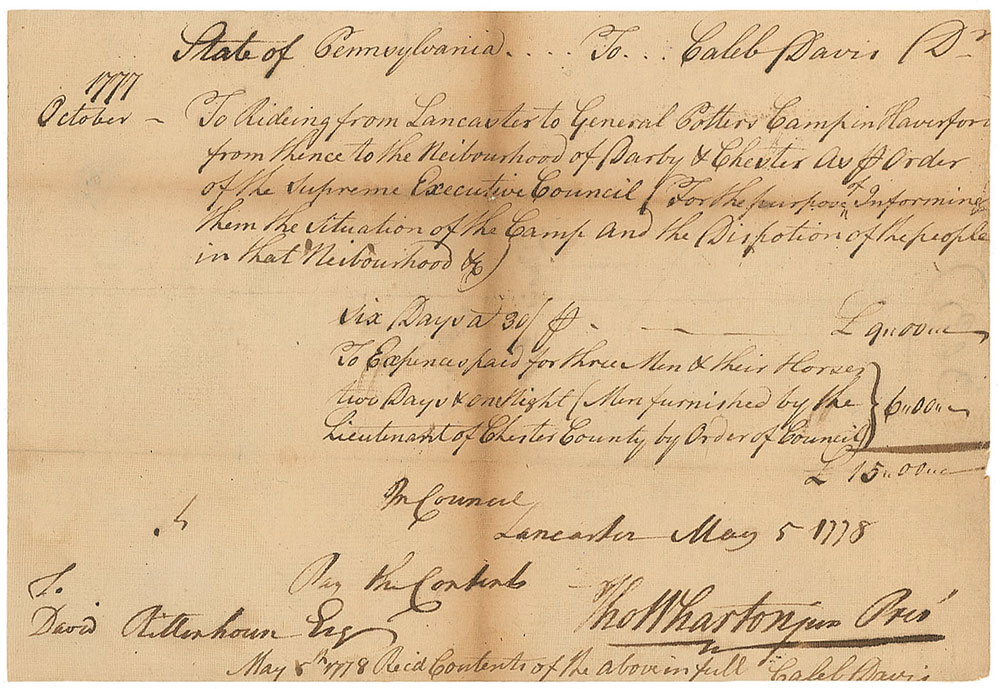 State of Pennsylvania .... To ... Caleb Davis Dr
1777
October – To Rideing from Lancaster to General Potters Camp in Haverford
from thence to the Neibourhood of Darby & Chester As ⅌ Order
of the Supreme Executive Council (For the purpose of Informing
them the Situation of the Camp and the Dispotion of the people
in that Neibourhood &c)
Six Days a 30/ ⅌ . — — — £ 9"00"—
To Expences paid for three Men & their Horses
two Days & one Night (Men furnished by the } 6"00"—
Lieutenant of Chester County by Order of Council)
£ 15"00"—
In Council
Lancaster May 5 1778
Pay the Contents
Tho Wharton jun Pres
To
David Rittenhouse Esq
May 5th 1778 Recd Contents of the above in full Caleb Davis